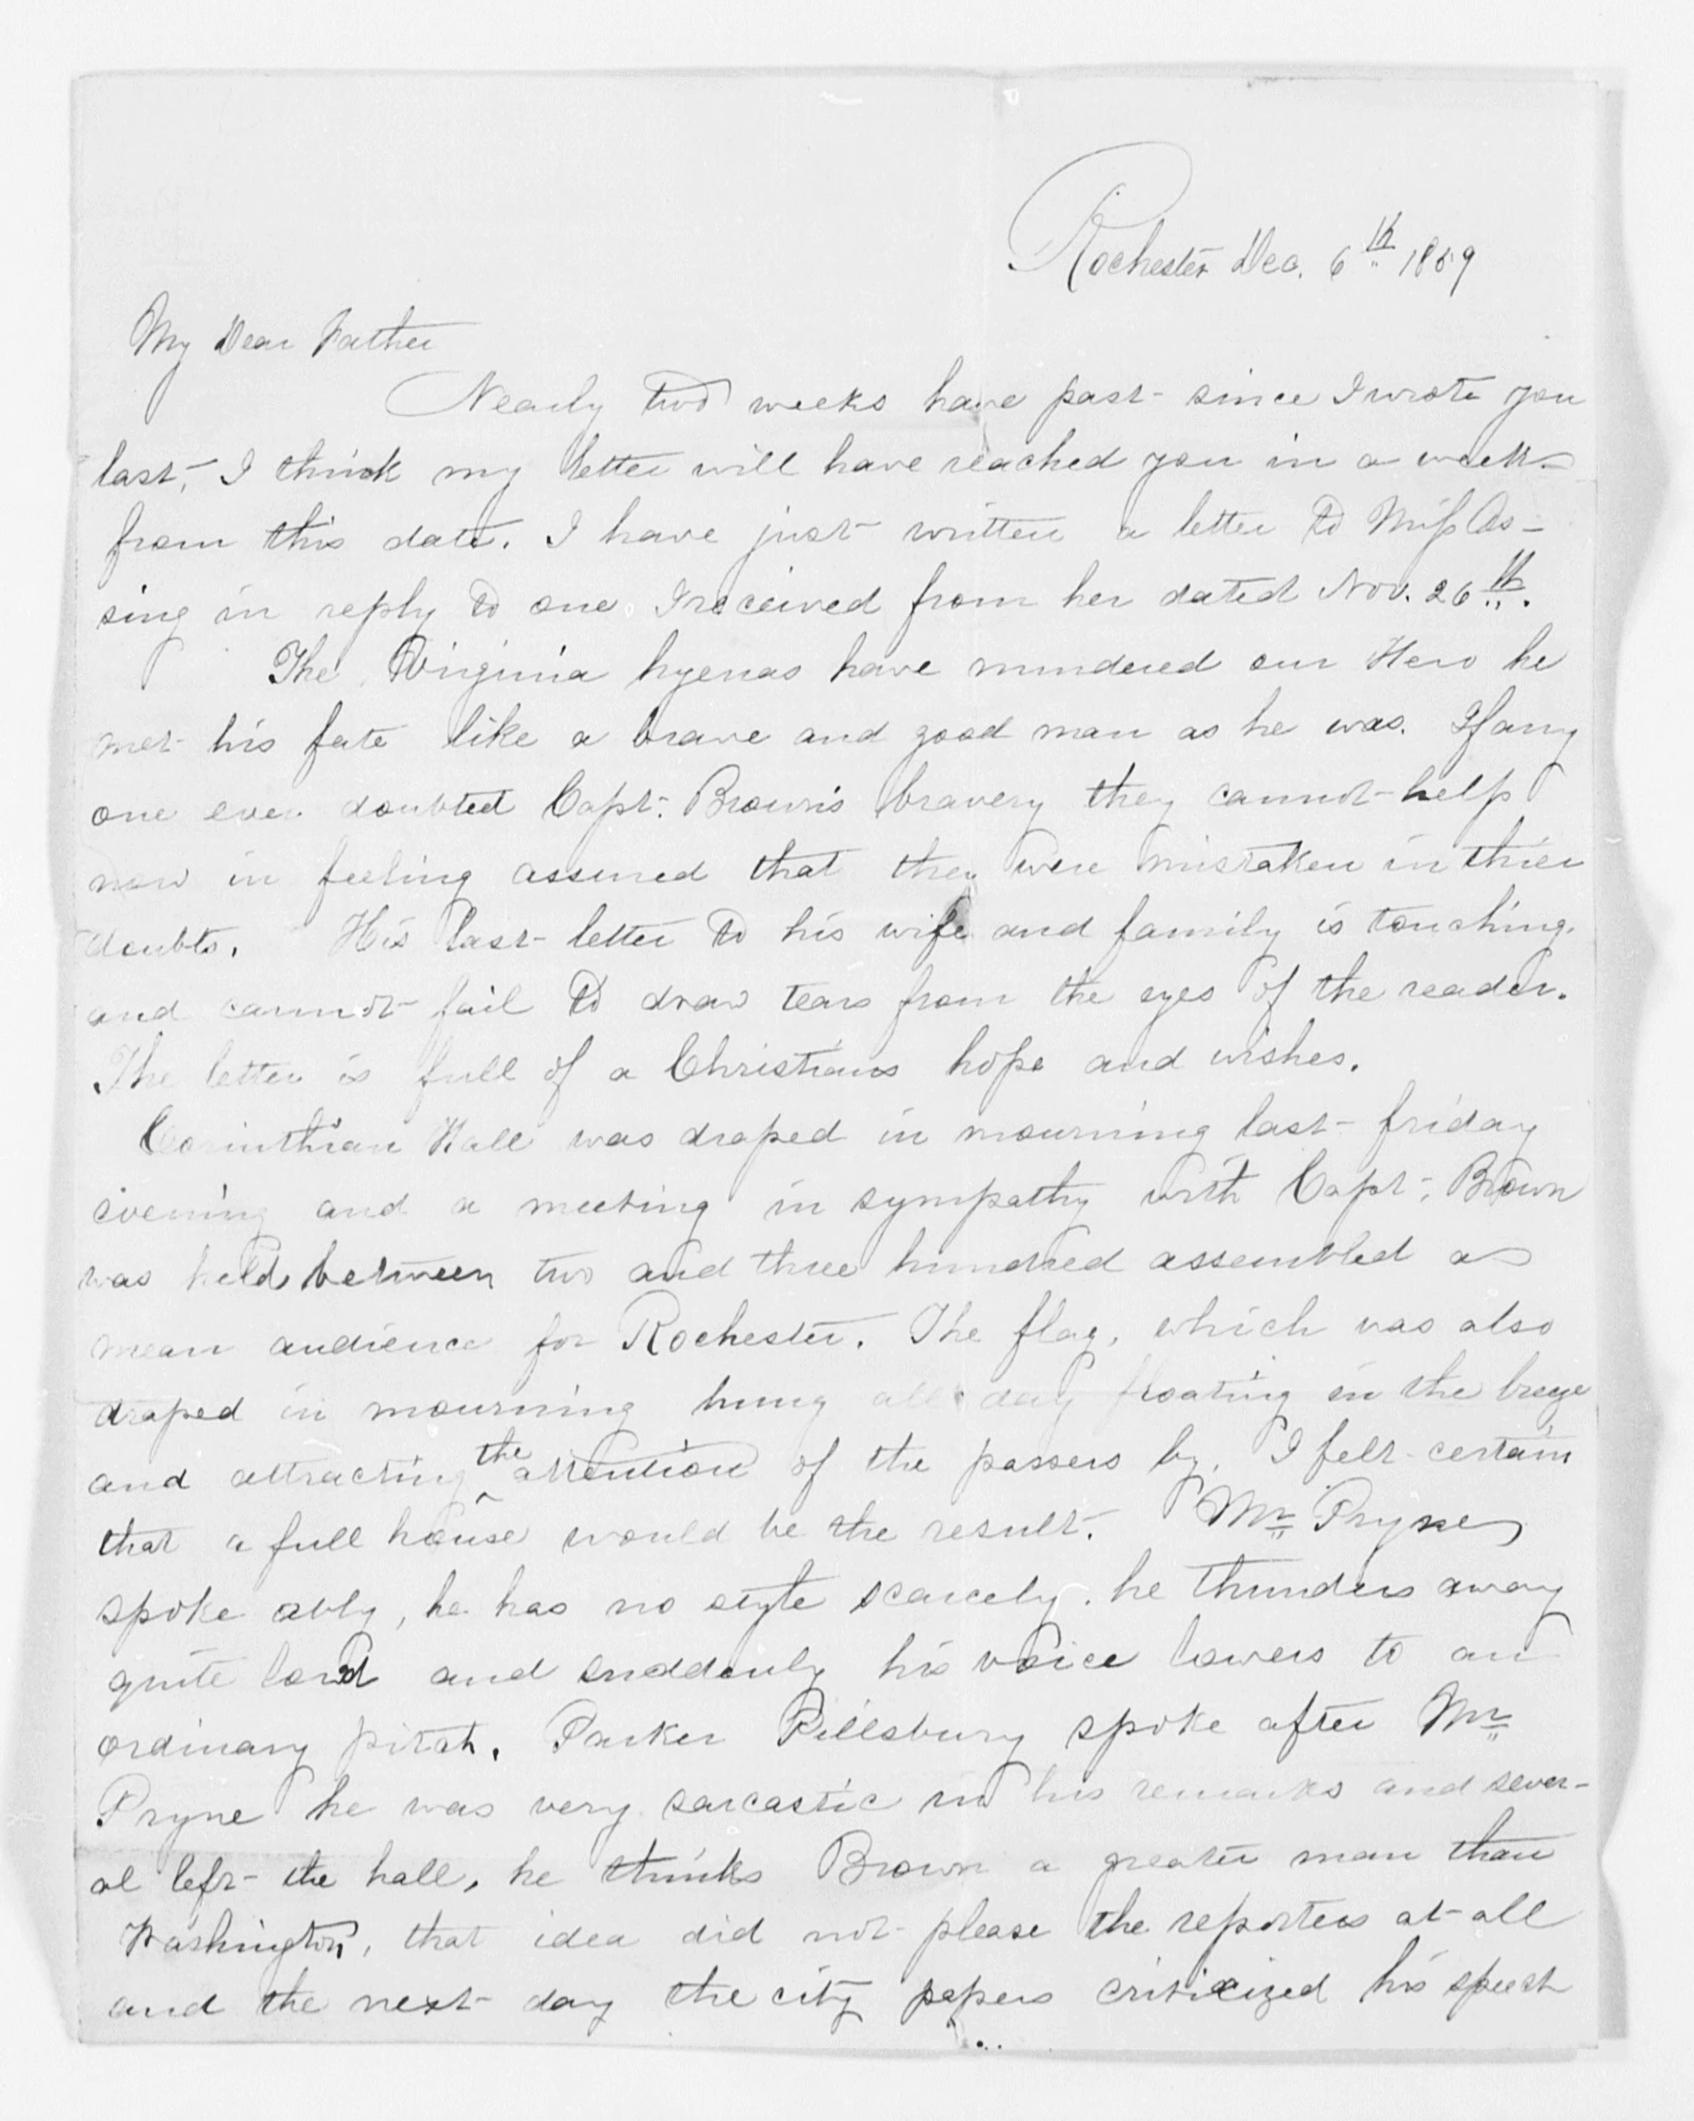 Rochester Dec. 6th 1859
My Dear Father
Nearly two weeks have past since I wrote you
last, I think my letter will have reached you in a week
from this date. I have just written a letter to Miss As-
sing in reply to one I received from her dated Nov. 26th.
The Virginia hyenas have murdered our Hero he
met his fate like a brave and good man as he was. If any
one ever doubted Capt. Brown's bravery they cannot help
now in feeling assured that they were mistaken in thier
doubts. His last letter to his wife and family is touching.
and cannot fail to draw tears from the eyes of the reader.
The letter is full of a Christians hope and wishes.
Corinthian Hall was draped in mourning last friday
evening and a meeting in sympathy with Capt. Brown
was held between two and three hundred assembled a
mean audience for Rochester. The flag, which was also
draped in mourning hung all day floating in the breeze
and attracting the attention of the passers by, I felt certain
that a full house would be the result. Mr Pryne
spoke ably, he has no style scarcely. he thunders away
quite loud and suddenly his voice lowers to an
ordinary pitch. Parker Pillsbury spoke after Mr
Pryne he was very sarcastic in his remarks and sever-
al left the hall, he thinks Brown a greater man than
Washington, that idea did not please the reporters at all
and the next day the city papers criticized his speech